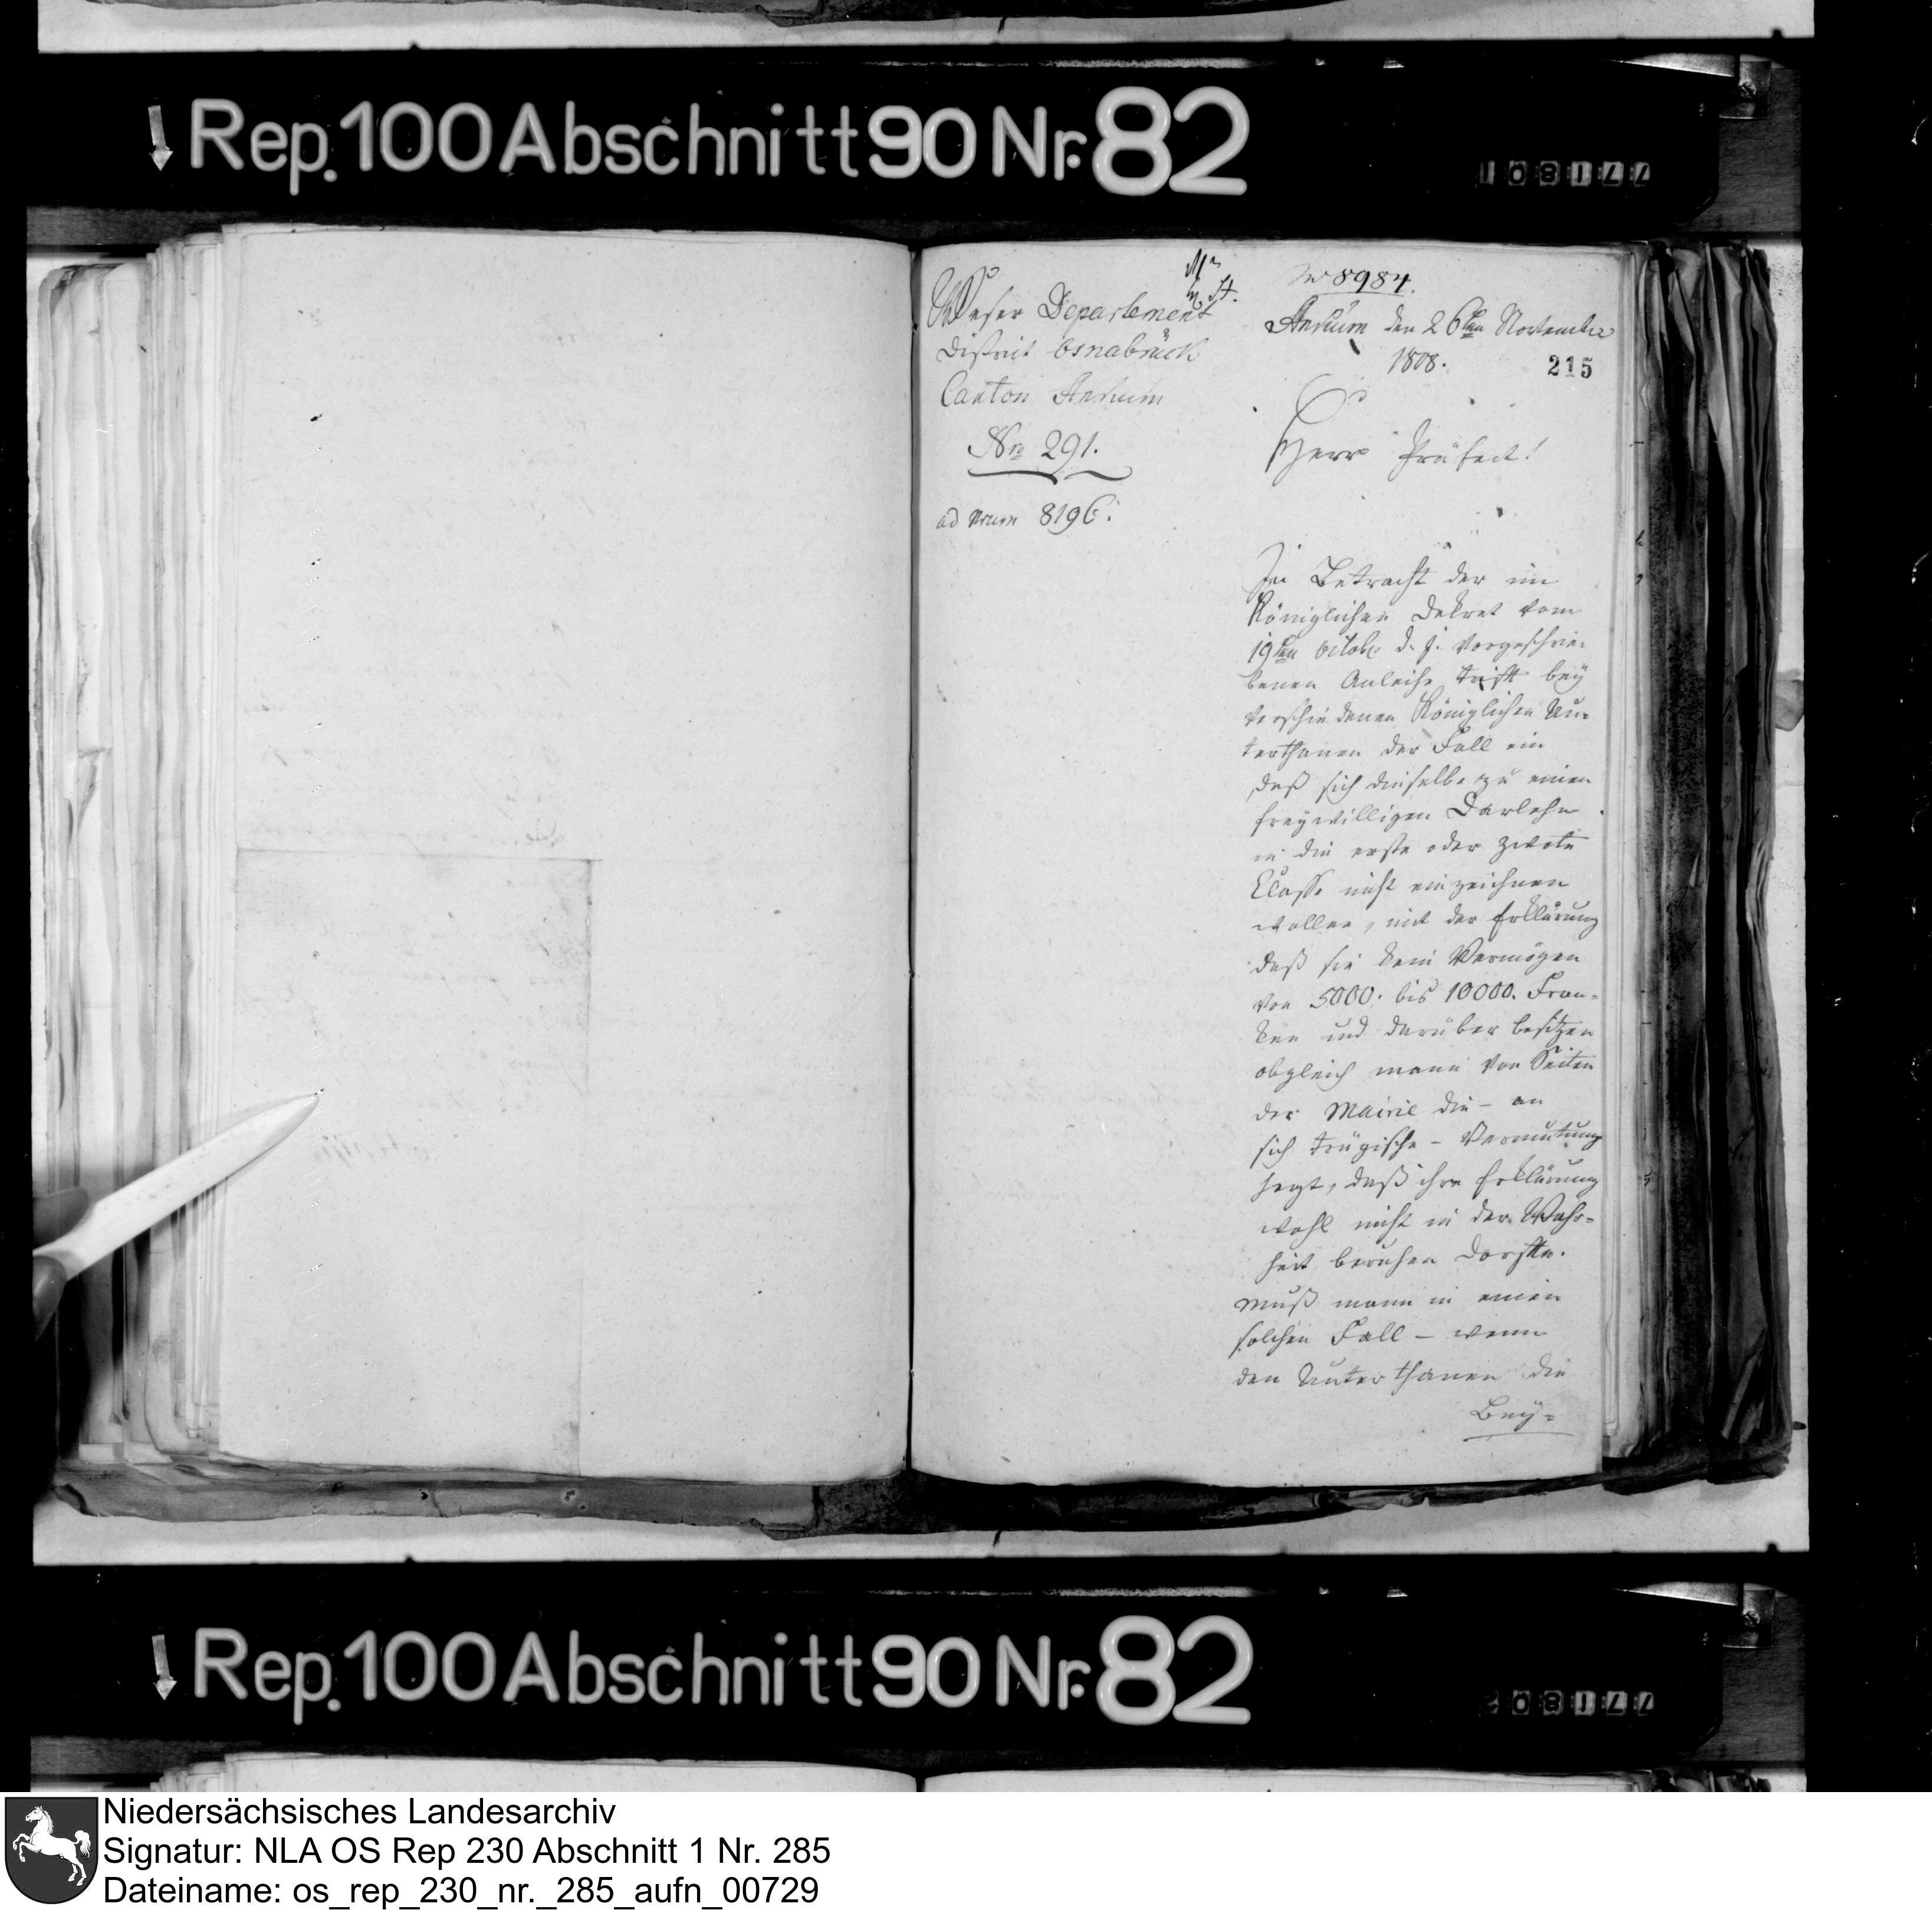 Rep. 100 Abschnitt 90 Nr. 82
108177
Weser Departement
District Osnabrück
Canton Ankum
Nro 291.
ad Num 8196.
No 8984.
Ankum den 26ten November
1808.
215
Herr Präfect!
In Betracht der im
Königlichen Dekret vom
19ten Octobr d. J. vorgeschrie-
benen Anleihe tritt bey
verschiedenen Königlichen Un-
terthanen der Fall ein
daß sich dieselbe zu einen
freywilligen Darlehn
in die erste oder zwote
Classe nicht einzeichnen
wollen, mit der Erklärung
daß sie kein Vermögen
von 5000. bis 10000. Fran-
ken und darüber besitzen
obgleich mann von Seiten
der Mairie die – an
sich trügische – Vermutung
hegt, daß ihre Erklärung
wohl nicht in der Wahr-
heit beruhen dörfte.
Muß mann in einen
solchen Fall – wenn
den Unterthanen die
Bey-
Rep. 100 Abschnitt 90 Nr. 82
208177
Niedersächsisches Landesarchiv
Signatur: NLA OS Rep 230 Abschnitt 1 Nr. 285
Dateiname: os_rep_230_nr._285_aufn_00729